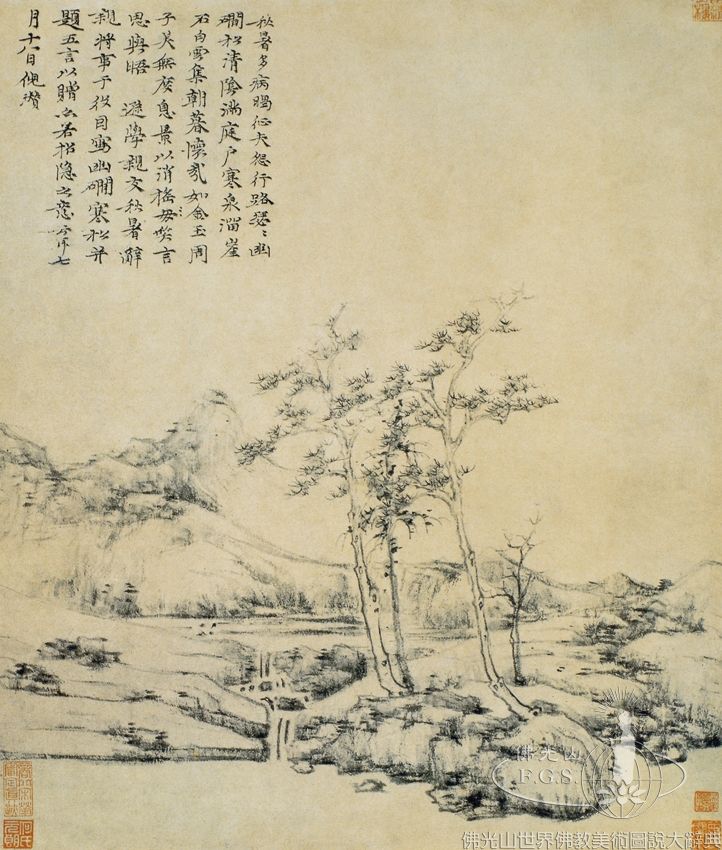 秋暑多病暍征夫怨行路瑟〻幽
澗松清陰滿庭戶寒泉溜崖
石白雲集朝暮懷哉如金玉周
子美無度息景以消搖笑言
思與晤 遜學親友秋暑辭
親將事于役因寫幽澗寒松并
題五言以贈亦若招隱之意云耳七
月十八日倪瓚
佛光山
F.G.S.
佛光山世界佛教美術圖說大辭典